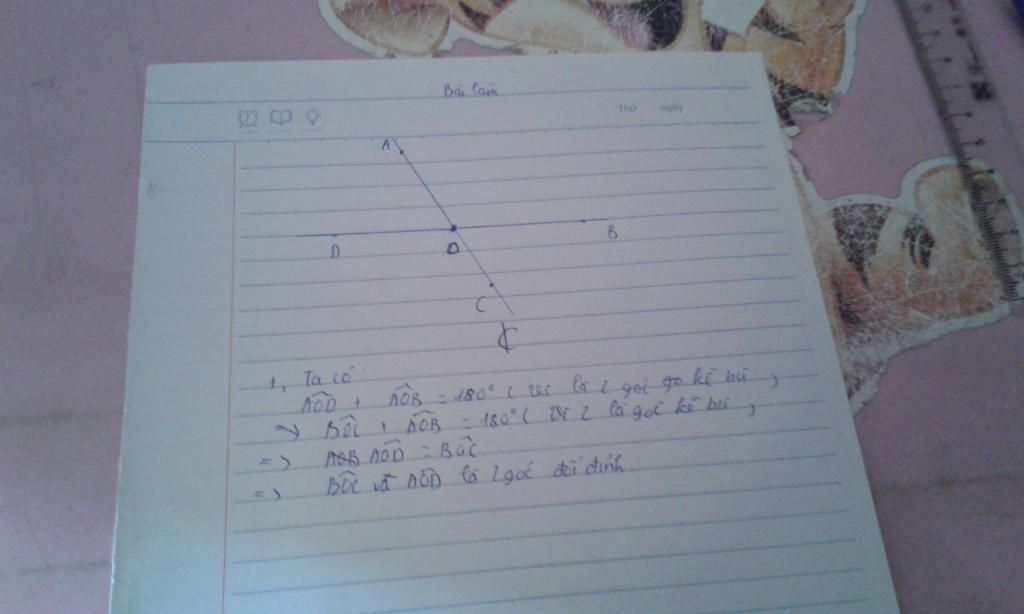 Bài làm
Thứ ngày
A
D
O
B
C
C
1, Ta có:
AOD + AOB = 180° ( vì là 2 góc go kề bù )
BOC + AOB = 180° ( vì 2 là góc kề bù )
=> AOB AOD = BOC
=> BOC và AOD là 2 góc đối đỉnh.